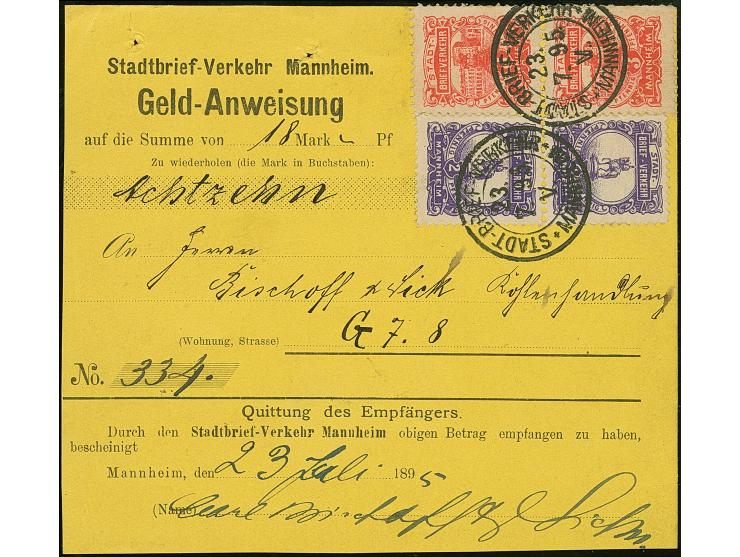 Stadtbrief-Verkehr Mannheim.
Geld-Anweisung
auf die Summe von 18 Mark Pf
Zu wiederholen (die Mark in Buchstaben):
Achtzehn
An Herrn
Bischoff & Sick Kohlenhandlung
(Wohnung, Strasse) G 7. 8
No. 334.
Quittung des Empfängers.
Durch den Stadtbrief-Verkehr Mannheim obigen Betrag empfangen zu haben,
bescheinigt
Mannheim, den 23 Juli 1895
(Name) Carl Bischoff
STADT-
BRIEF-VERKEHR
MANNHEIM
STADT-BRIEF-VERKEHR MANNHEIM
23.
7. 95
V
STADT-
BRIEF-VERKEHR
MANNHEIM
STADT-BRIEF-VERKEHR MANNHEIM
23.
V